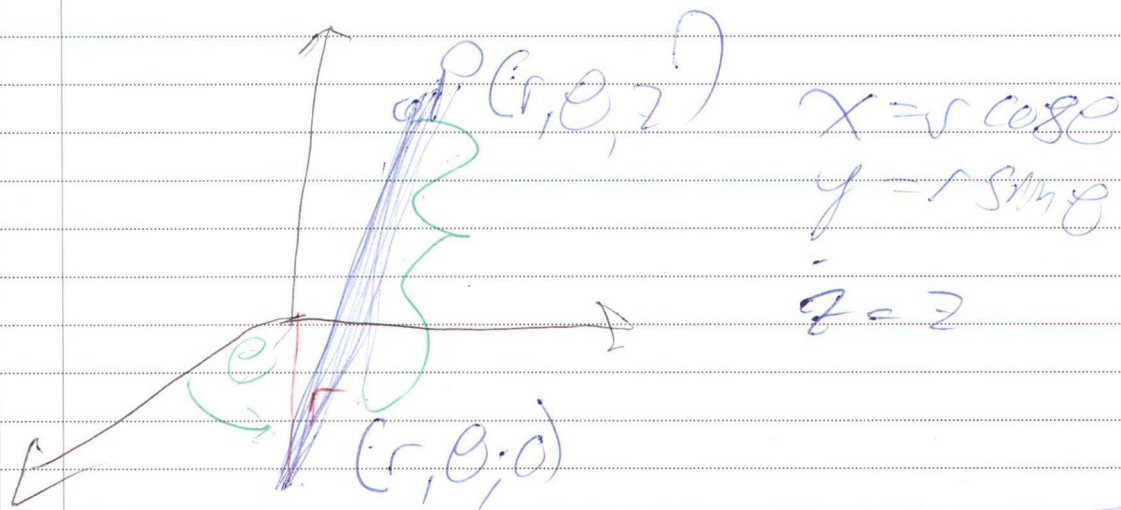 (r, θ, z)
x = r cos θ
y = r sin θ
z = z
θ
(r, θ, 0)